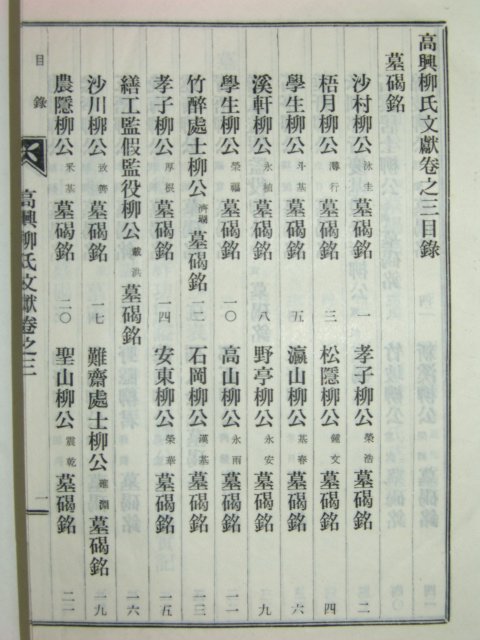 高興柳氏文獻卷之三目錄
墓碣銘
沙村柳公 泳圭 墓碣銘 一 孝子柳公 榮浩 墓碣銘 二
梧月柳公 行 墓碣銘 三 松隱柳公 鍾文 墓碣銘 四
學生柳公 斗基 墓碣銘 五 瀛山柳公 基春 墓碣銘 六
溪軒柳公 永植 墓碣銘 八 野亭柳公 永安 墓碣銘 九
學生柳公 榮福 墓碣銘 一〇 高山柳公 永雨 墓碣銘 一一
竹醉處士柳公 濟 墓碣銘 一二 石岡柳公 漢基 墓碣銘 一三
孝子柳公 厚根 墓碣銘 一四 安東柳公 榮華 墓碣銘 一五
繕工監假監役柳公 戴洪 墓碣銘 一六
沙川柳公 墓碣銘 一七 難齋處士柳公 淵 墓碣銘 一九
農隱柳公 基 墓碣銘 二〇 聖山柳公 震乾 墓碣銘 二一
目錄
高興柳氏文獻卷之三
一